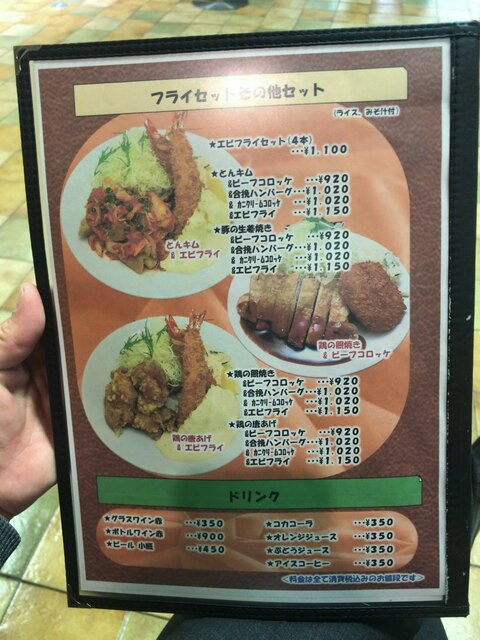 フライセットその他セット
(ライス、みそ汁付)
★エビフライセット(4本)
…¥1,100
★とんキム
&ビーフコロッケ …¥920
&合挽ハンバーグ…¥1,020
& カニクリームコロッケ …¥1,020
&エビフライ …¥1,150
★豚の生姜焼き
&ビーフコロッケ …¥920
&合挽ハンバーグ…¥1,020
& カニクリームコロッケ …¥1,020
&エビフライ …¥1,150
とんキム
& エビフライ
鶏の照焼き
& ビーフコロッケ
★鶏の照焼き
&ビーフコロッケ …¥920
&合挽ハンバーグ…¥1,020
& カニクリームコロッケ …¥1,020
&エビフライ …¥1,150
★鶏の唐あげ
&ビーフコロッケ …¥920
&合挽ハンバーグ…¥1,020
& カニクリームコロッケ …¥1,020
&エビフライ …¥1,150
鶏の唐あげ
& エビフライ
ドリンク
★グラスワイン赤 …¥350
★ボトルワイン赤 …¥900
★ビール 小瓶 …¥450
★コカコーラ …¥350
★オレンジジュース …¥350
★ぶどうジュース …¥350
★アイスコーヒー …¥350
<料金は全て消費税込みのお値段です>